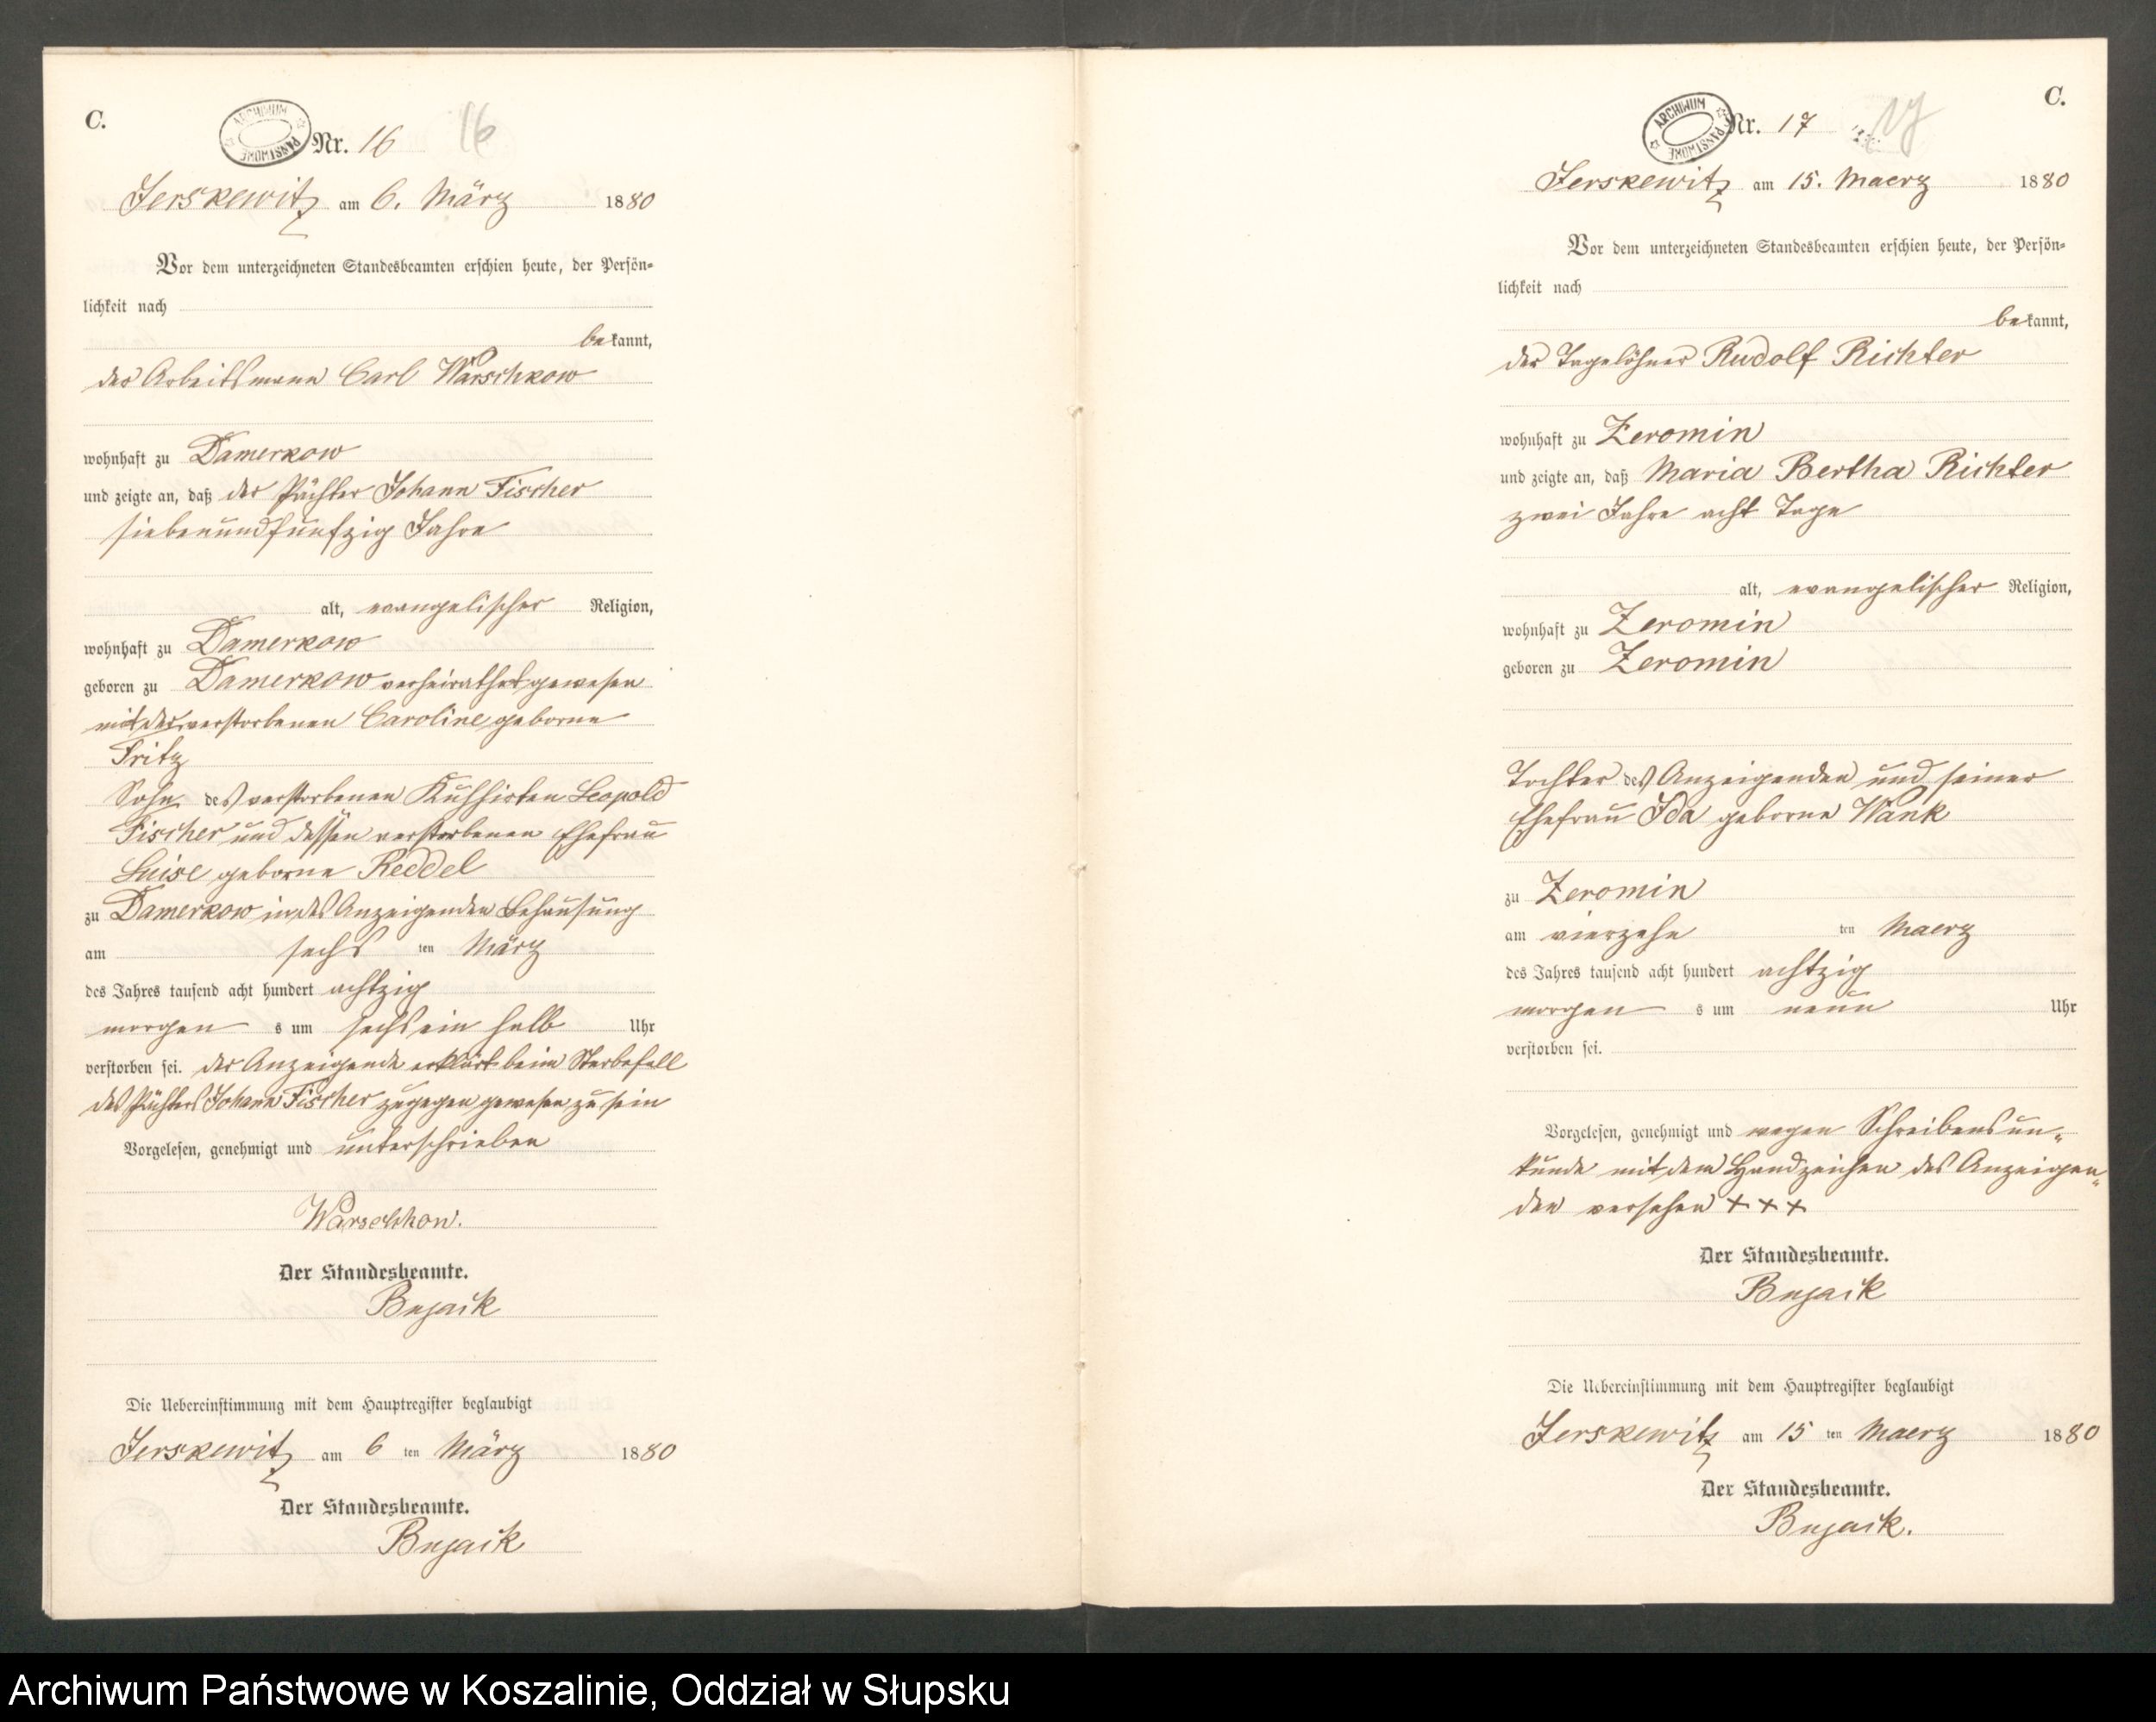 C.
ARCHIWUM PAŃSTWOWE
Nr. 16 16
Jerskewitz am 6. März 1880
Vor dem unterzeichneten Standesbeamten erschien heute, der Persön-
lichkeit nach
bekannt,
der Arbeitsmann Carl Warschkow
wohnhaft zu Damerkow
und zeigte an, daß der Pächter Johann Fischer
siebenundfunfzig Jahre
alt, evangelischer Religion,
wohnhaft zu Damerkow
geboren zu Damerkow verheirathet gewesen
mit der verstorbenen Caroline geborne
Fritz
Sohn des verstorbenen Kuhhirten Leopold
Fischer und dessen verstorbenen Ehefrau
Luise geborne Reddel
zu Damerkow in des Anzeigenden Behausung
am sechs ten März
des Jahres tausend acht hundert achtzig
morgen s um sechs ein halb Uhr
verstorben sei. der Anzeigende erklärt beim Sterbefall
des Pächters Johann Fischer zugegen gewesen zu sein
Vorgelesen, genehmigt und unterschrieben
Warschkow.
Der Standesbeamte.
Bujack
Die Uebereinstimmung mit dem Hauptregister beglaubigt
Jerskewitz am 6 ten März 1880
Der Standesbeamte.
Bujack
C.
ARCHIWUM PAŃSTWOWE
Nr. 17 17
Jerskewitz am 15. Maerz 1880
Vor dem unterzeichneten Standesbeamten erschien heute, der Persön-
lichkeit nach
bekannt,
der Tagelöhner Rudolf Richter
wohnhaft zu Zeromin
und zeigte an, daß Maria Bertha Richter
zwei Jahre acht Tage
alt, evangelischer Religion,
wohnhaft zu Zeromin
geboren zu Zeromin
Tochter des Anzeigenden und seiner
Ehefrau Ida geborne Wank
zu Zeromin
am vierzehn ten Maerz
des Jahres tausend acht hundert achtzig
morgen s um neun Uhr
verstorben sei.
Vorgelesen, genehmigt und wegen Schreibensun-
kunde mit dem Handzeichen des Anzeigen-
den versehen +++
Der Standesbeamte.
Bujack
Die Uebereinstimmung mit dem Hauptregister beglaubigt
Jerskewitz am 15 ten Maerz 1880
Der Standesbeamte.
Bujack.
Archiwum Państwowe w Koszalinie, Oddział w Słupsku